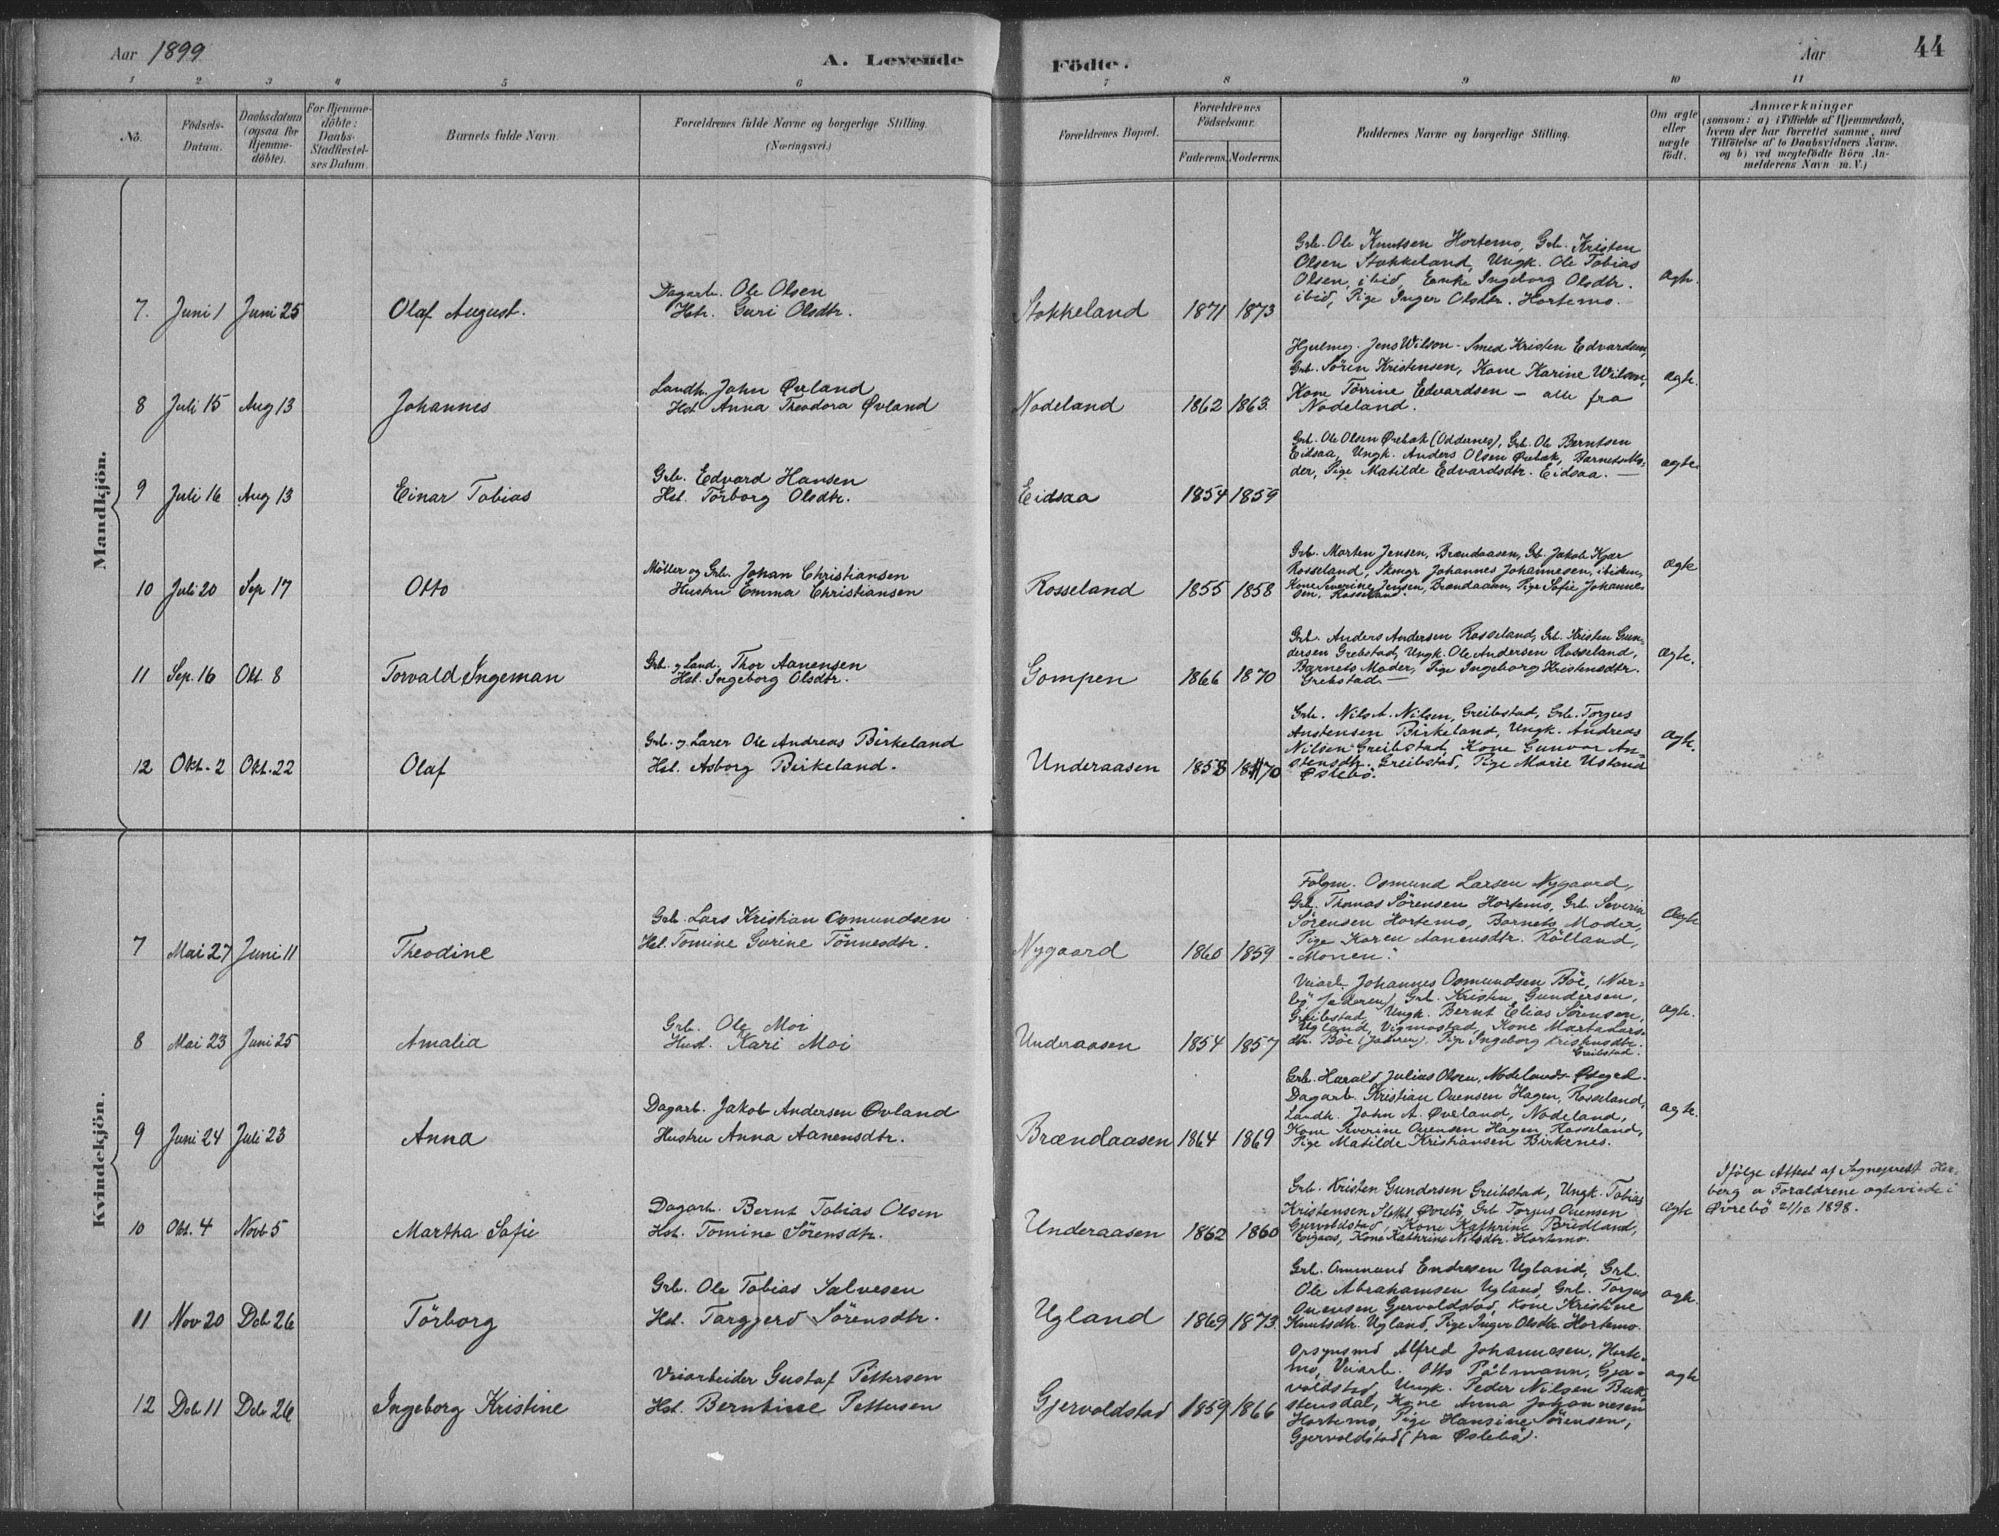 Aar 1899
A. Levende Födte.
Aar
44
1 2 3 4 5 6 7 8 9 10 11
No.
Födsels-
Datum.
Daabsdatum
(ogsaa for
Hjemme-
döbte).
For Hjemme-
döbte:
Daabs-
Stadfæstel-
ses Datum.
Barnets fulde Navn.
Forældrenes fulde Navne og borgerlige Stilling.
(Næringsvei.)
Forældrenes Bopæl.
Forældrenes
Födselsaar.
Faderens. Moderens.
Faddernes Navne og borgerlige Stilling.
Om ægte
eller
uægte
födt.
Anmærkninger
(saasom: a) i Tilfælde af Hjemmedaab,
hvem der har forrettet samme, med
Tilföielse af to Daabsvidners Navne,
og b) ved uægtefödte Börn An-
melderens Navn m. V.)
Mandkjön.
7. Juni 1 Juni 25 Olaf August.
Dagarb. Ole Olsen
Hstr. Guri Olsdtr.
Stokkeland 1871 1873
Grb. Ole Knutsen Hortemo, Grb. Kristen
Olsen Stokkeland, Ungk. Ole Tobias
Olsen, ibid, Enke Ingeborg Olsdtr.
ibid, Pige Inger Olsdtr. Hortemo.
ægte.
8 Juli 15 Aug 13 Johannes
Landh. John Øvland
Hst. Anna Theodora Øvland
Nodeland 1862 1863.
Hjulmg. Jens Wilson - Smed Kristen Edvardsen,
Grb. Sören Kristensen, Kone Karine Wilson,
Kone Törrine Edvardsen - alle fra
Nodeland.
ægte.
9 Juli 16 Aug 13 Einar Tobias
Grb. Edvard Hansen
Hst. Törborg Olsdtr.
Eidsaa 1854 1859
Grb. Ole Olsen Ørebæk (Oddernes), Grb. Ole Berntsen
Eidsaa, Ungk. Anders Olsen Ørebæk, Barnets Mo-
der, Pige Matilde Edvardsdtr. Eidsaa. —
ægte
10 Juli 20 Sep 17 Otto
Möller og Grb. Johan Christiansen
Hustru Emma Christiansen
Rosseland 1855 1858
Grb. Morten Jensen, Brændaasen, Gb. Jakob Kjær
Rosseland, Skmgr Johannes Johannesen, ibidem,
Kone Severine Jensen, Brændaasen, Pige Sofie Johanne-
sen, Rosseland.
ægte
11 Sep. 16 Okt. 8 Torvald Ingeman
Grb. og Land. Thor Aanensen
Hst. Ingeborg Olsdtr.
Gompen 1866 1870
Grb. Anders Andersen Rosseland, Grb. Kristen Gun-
dersen Grebstad, Ungk. Ole Andersen Rosseland,
Barnets Moder, Pige Ingeborg Kristensdtr.
Grebstad. —
ægte.
12 Okt. 2 Okt. 22 Olaf
Grb. og Lærer Ole Andreas Birkeland
Hst. Asborg Birkeland.
Underaasen 1858 1870
Grb. Nils A. Nilsen, Greibstad, Grb. Torjus
Anstensen Birkeland, Ungk. Andreas
Nilsen Greibstad, Kone Gunvor An-
stensdtr. Greibstad, Pige Marie Ustand
Øslebö.
ægte.
Kvindekjön.
7 Mai 27 Juni 11 Theodine
Grb. Lars Kristian Osmundsen
Hst. Tomine Gurine Tönnesdtr.
Nygaard 1860 1859
Folgm. Osmund Larsen Nygaard,
Grb. Thomas Sörensen Hortemo, Grb. Severin
Sörensen Hortemo, Barnets Moder,
Pige Karen Aanensdtr. Rölland,
- Monen.
Ægte
8 Mai 23 Juni 25 Amalia
Grb. Ole Moi
Hust. Kari Moi
Underaasen 1854 1857
Veiarb. Johannes Osmundsen Böe, (Nær-
bö Jæderen) Grb. Kristen Gundersen,
Greibstad, Ungk. Bernt Elias Sörensen,
Ugland, Vigmostad, Kone Marta Lars-
dtr. Böe (Jæderen). Pige Ingeborg Kristensdtr.
Greibstad.
ægte.
9 Juni 24 Juli 23 Anna
Dagarb. Jakob Andersen Øvland
Hustru Anna Aanensdtr.
Brændaasen 1864 1869
Grb. Harald Julius Olsen, Nodelands Ødegrd.
Dagarb. Kristian Ouensen Hagen, Rosseland,
Landh. John A. Øvland, Nodeland,
Kone Severine Ouensen Hagen, Rosseland,
Pige Matilde Kristiansen Birkenes.
ægte.
10 Okt. 4 Novb 5 Martha Sofie
Dagarb. Bernt Tobias Olsen
Hst. Tomine Sörensdtr.
Underaasen 1862 1860
Grb. Kristen Gundersen Greibstad, Ungk. Tobias
Kristensen Øvrebö, Grb Torjus Ouensen
Gjervoldstad, Kone Kathrine Brudland,
Eigaas, Kone Kathrine Nilsdtr. Hortemo.
ægte
Ifölge Attest af Sogneprest Her-
berg er Forældrene ægteviede i
Øvrebö 21/12 1898.
11 Nov 20 Deb 26 Törborg
Grb. Ole Tobias Salvesen
Hst. Targjerd Sörensdtr.
Ugland 1869 1873.
Grb. Ommund Endresen Ugland, Grb.
Ole Abrahamsen Ugland, Grb. Torjus
Ouensen Gjervoldstad, Kone Kristine
Knutsdtr. Ugland, Pige Inger Olsdtr Hortemo.
ægte.
12 Deb 11 Deb 26 Ingeborg Kristine
Veiarbeider Gustaf Pettersen
Hst. Berntine Pettersen
Gjervoldstad 1859 1866
Opsynsmd Alfred Johannesen, Horte-
mo, Veiarb. Otto Pålmann, Gjer-
voldstad, Ungk. Peder Nilsen Buk-
stensdal, Kone Anna Johannesen
Hortemo, Pige Hansine Sörensen,
Gjervoldstad (fra Øslebö).
ægte